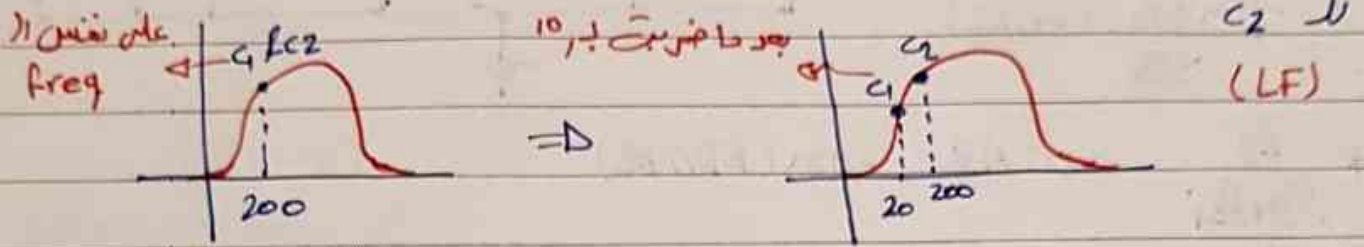 على نفس ال
freq
C1 & C2
200
⇒
بعد ما ضربت بـ 10
C1
C2
20
200
لل C2
(LF)